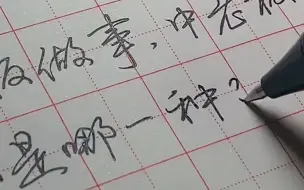 做事,中
是哪一种